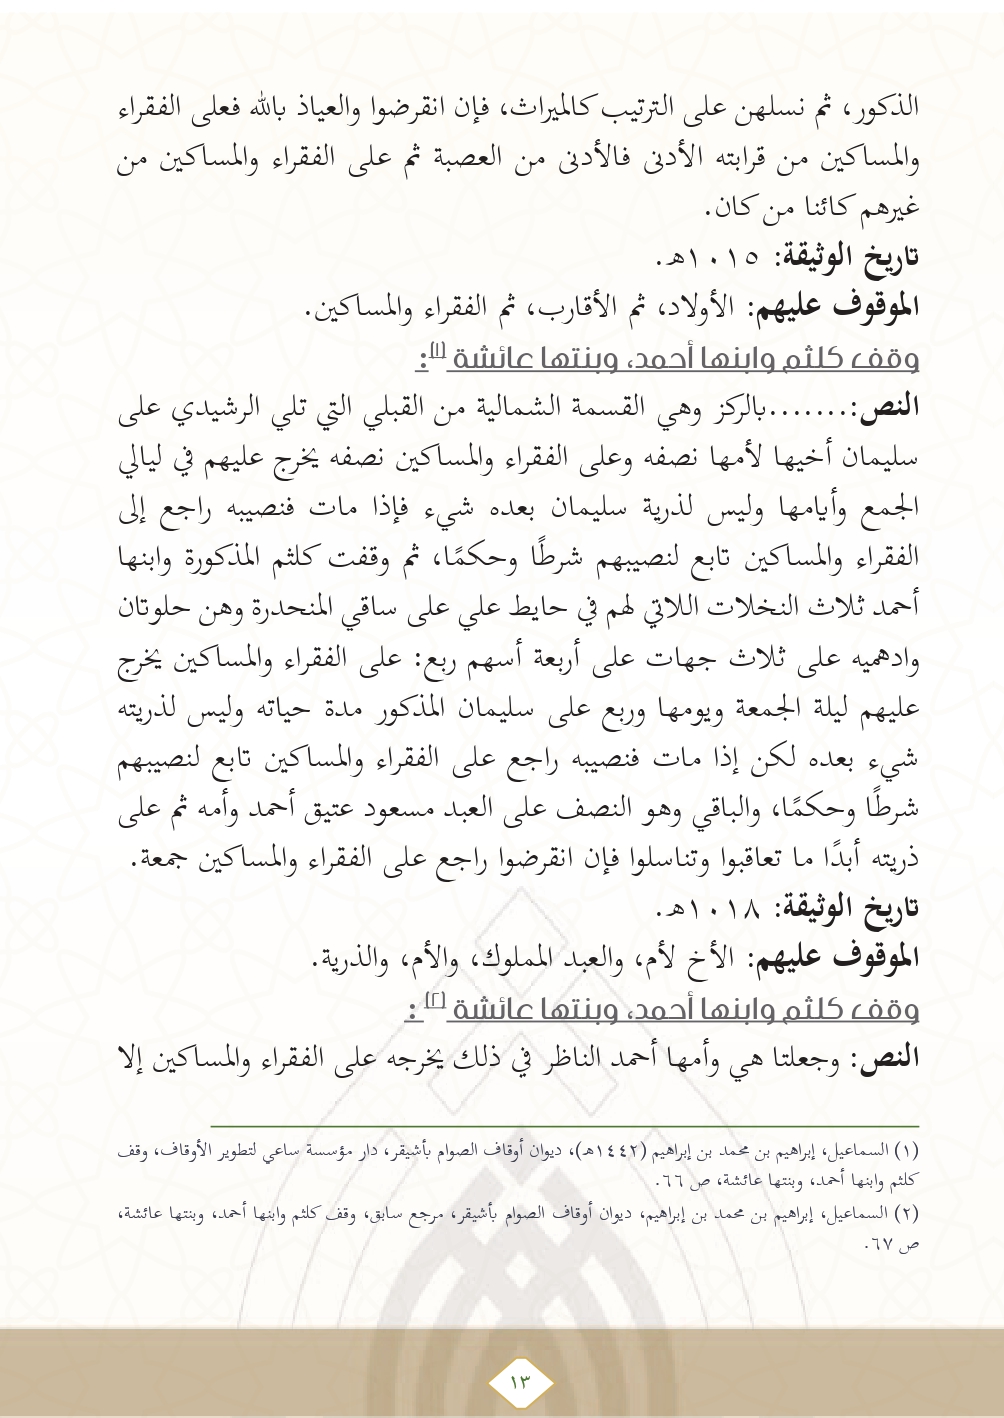 الذكور، ثم نسلهن على الترتيب كالميراث، فإن انقرضوا والعياذ بالله فعلى الفقراء
والمساكين من قرابته الأدنى فالأدنى من العصبة ثم على الفقراء والمساكين من
غيرهم كائنا من كان.
تاريخ الوثيقة: ١٠١٥هـ.
الموقوف عليهم: الأولاد، ثم الأقارب، ثم الفقراء والمساكين.
وقف كلثم وابنها أحمد، وبنتها عائشة (١):
النص:.......بالركز وهي القسمة الشمالية من القبلي التي تلي الرشيدي على
سليمان أخيها لأمها نصفه وعلى الفقراء والمساكين نصفه يخرج عليهم في ليالي
الجمع وأيامها وليس لذرية سليمان بعده شيء فإذا مات فنصيبه راجع إلى
الفقراء والمساكين تابع لنصيبهم شرطًا وحكمًا، ثم وقفت كلثم المذكورة وابنها
أحمد ثلاث النخلات اللاتي لهم في حايط علي على ساقي المنحدرة وهن حلوتان
وادهميه على ثلاث جهات على أربعة أسهم ربع: على الفقراء والمساكين يخرج
عليهم ليلة الجمعة ويومها وربع على سليمان المذكور مدة حياته وليس لذريته
شيء بعده لكن إذا مات فنصيبه راجع على الفقراء والمساكين تابع لنصيبهم
شرطًا وحكمًا، والباقي وهو النصف على العبد مسعود عتيق أحمد وأمه ثم على
ذريته أبدًا ما تعاقبوا وتناسلوا فإن انقرضوا راجع على الفقراء والمساكين جمعة.
تاريخ الوثيقة: ١٠١٨هـ.
الموقوف عليهم: الأخ لأم، والعبد المملوك، والأم، والذرية.
وقف كلثم وابنها أحمد، وبنتها عائشة (٢) :
النص: وجعلتا هي وأمها أحمد الناظر في ذلك يخرجه على الفقراء والمساكين إلا
(١) السماعيل، إبراهيم بن محمد بن إبراهيم (١٤٤٢هـ)، ديوان أوقاف الصوام بأشيقر، دار مؤسسة ساعي لتطوير الأوقاف، وقف
كلثم وابنها أحمد، وبنتها عائشة، ص ٦٦.
(٢) السماعيل، إبراهيم بن محمد بن إبراهيم، ديوان أوقاف الصوام بأشيقر، مرجع سابق، وقف كلثم وابنها أحمد، وبنتها عائشة،
ص ٦٧.
١٣